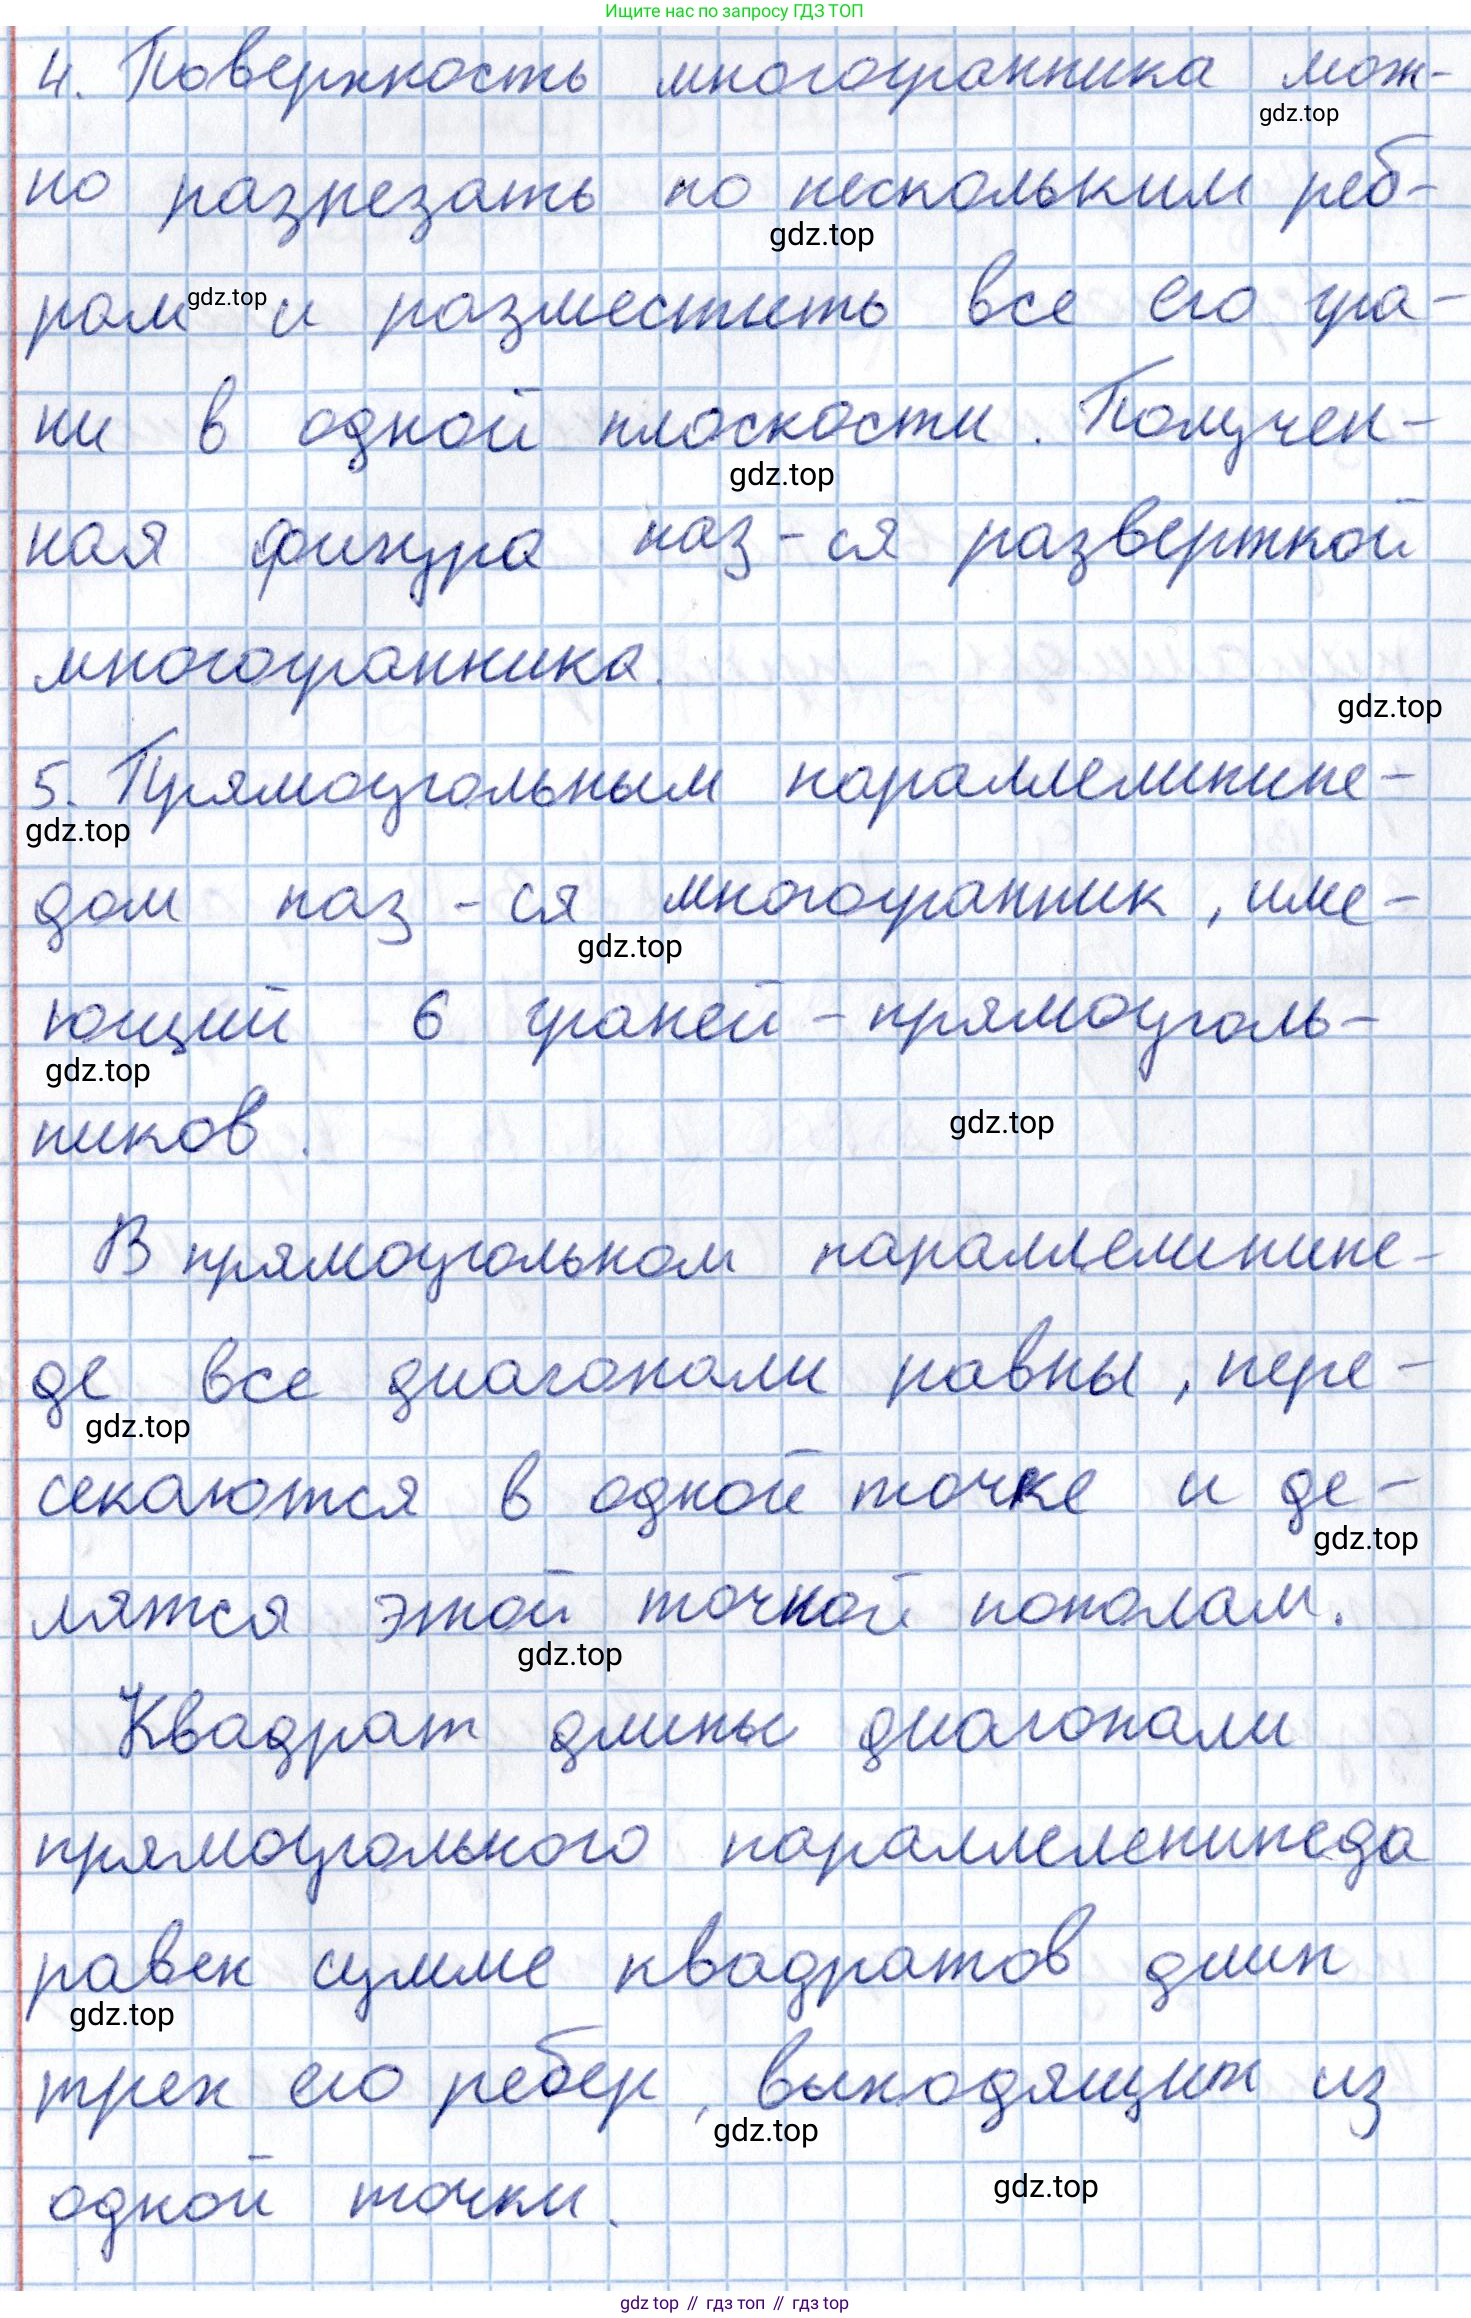 Ищите нас по запросу ГДЗ ТОП
4. Поверхность многогранника мож-
gdz.top
но разрезать по нескольким реб-
gdz.top
рам и разместить все его гра-
gdz.top
ни в одной плоскости. Получен-
gdz.top
ная фигура наз-ся разверткой
многогранника.
gdz.top
5. Прямоугольным параллелипипе-
gdz.top
дом наз-ся многогранник, име-
gdz.top
ющий 6 граней-прямоуголь-
gdz.top
ников.
gdz.top
В прямоугольном параллелипипе-
де все диагонали равны, пере-
gdz.top
секаются в одной точке и де-
gdz.top
лятся этой точкой пополам.
gdz.top
Квадрат длины диагонали
прямоугольного параллелепипеда
равен сумме квадратов длин
gdz.top
трех его ребер, выходящих из
gdz.top
одной точки.
gdz.top
gdz top // гдз топ // гдз top